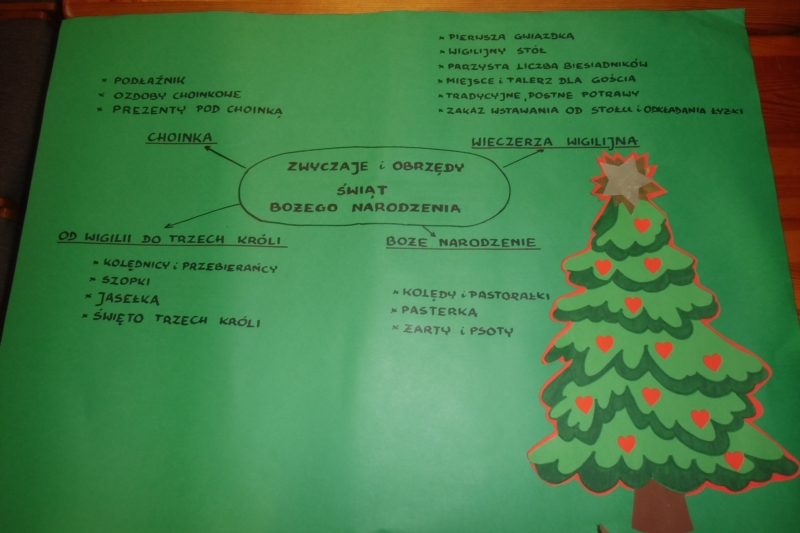 × PODŁAŹNIK
× OZDOBY CHOINKOWE
× PREZENTY POD CHOINKĄ
CHOINKA
× PIERWSZA GWIAZDKA
× WIGILIJNY STÓŁ
× PARZYSTA LICZBA BIESIADNIKÓW
× MIEJSCE i TALERZ DLA GOŚCIA
× TRADYCYJNE, POSTNE POTRAWY
× ZAKAZ WSTAWANIA OD STOŁU i ODKŁADANIA ŁYŻKI
WIECZERZA WIGILIJNA
ZWYCZAJE i OBRZĘDY
ŚWIĄT
BOŻEGO NARODZENIA
OD WIGILII DO TRZECH KRÓLI
× KOLĘDNICY i PRZEBIERAŃCY
× SZOPKI
× JASEŁKA
× ŚWIĘTO TRZECH KRÓLI
BOŻE NARODZENIE
× KOLĘDY i PASTORAŁKI
× PASTERKA
× ŻARTY i PSOTY